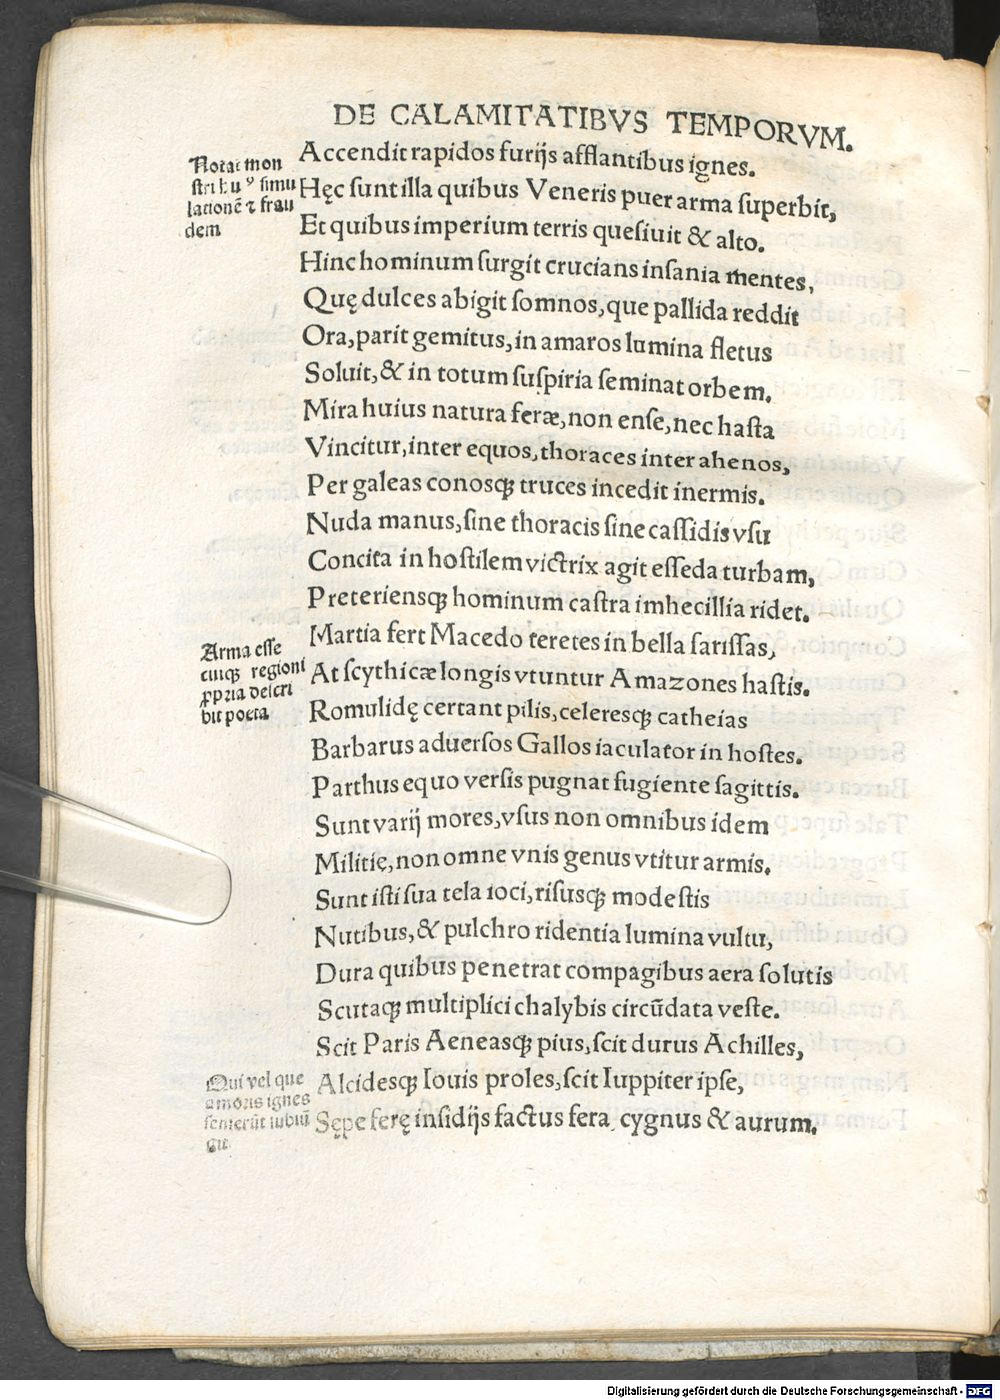 DE CALAMITATIBVS TEMPORVM.
Accendit rapidos furijs afflantibus ignes.
Notat mon
stri huꝰ simu
lationē ⁊ frau
dem
Hęc sunt illa quibus Veneris puer arma superbit,
Et quibus imperium terris quesiuit & alto.
Hinc hominum surgit crucians insania mentes,
Quę dulces abigit somnos, que pallida reddit
Ora, parit gemitus, in amaros lumina fletus
Soluit, & in totum suspiria seminat orbem.
Mira huius natura feræ, non ense, nec hasta
Vincitur, inter equos, thoraces inter ahenos,
Per galeas conosqꝫ truces incedit inermis.
Nuda manus, sine thoracis sine cassidis vsu
Concita in hostilem victrix agit esseda turbam,
Preteriensqꝫ hominum castra imhecillia ridet.
Martia fert Macedo teretes in bella sarissas,
Arma esse
cuiqꝫ regioni
ꝓpria descri
bit poeta
At scythicæ longis vtuntur Amazones hastis.
Romulidę certant pilis, celeresqꝫ catheias
Barbarus aduersos Gallos iaculator in hostes.
Parthus equo versis pugnat fugiente sagittis.
Sunt varij mores, vsus non omnibus idem
Militię, non omne vnis genus vtitur armis.
Sunt isti sua tela ioci, risusqꝫ modestis
Nutibus, & pulchro ridentia lumina vultu,
Dura quibus penetrat compagibus aera solutis
Scutaqꝫ multiplici chalybis circūdata veste.
Scit Paris Aeneasqꝫ pius, scit durus Achilles,
Alcidesqꝫ Iouis proles, scit Iuppiter ipse,
Qui vel que
amoris ignes
senserūt subiū
git
Sępe ferę insidijs factus fera, cygnus & aurum.
Digitalisierung gefördert durch die Deutsche Forschungsgemeinschaft - DFG